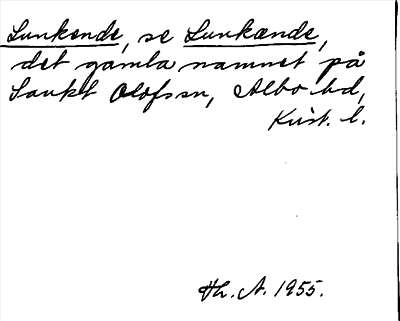 Lunkende, se Lunkände,
det gamla namnet på
Sankt Olofs sn, Albo hd,
Krist. l.
Hr. A. 1955.